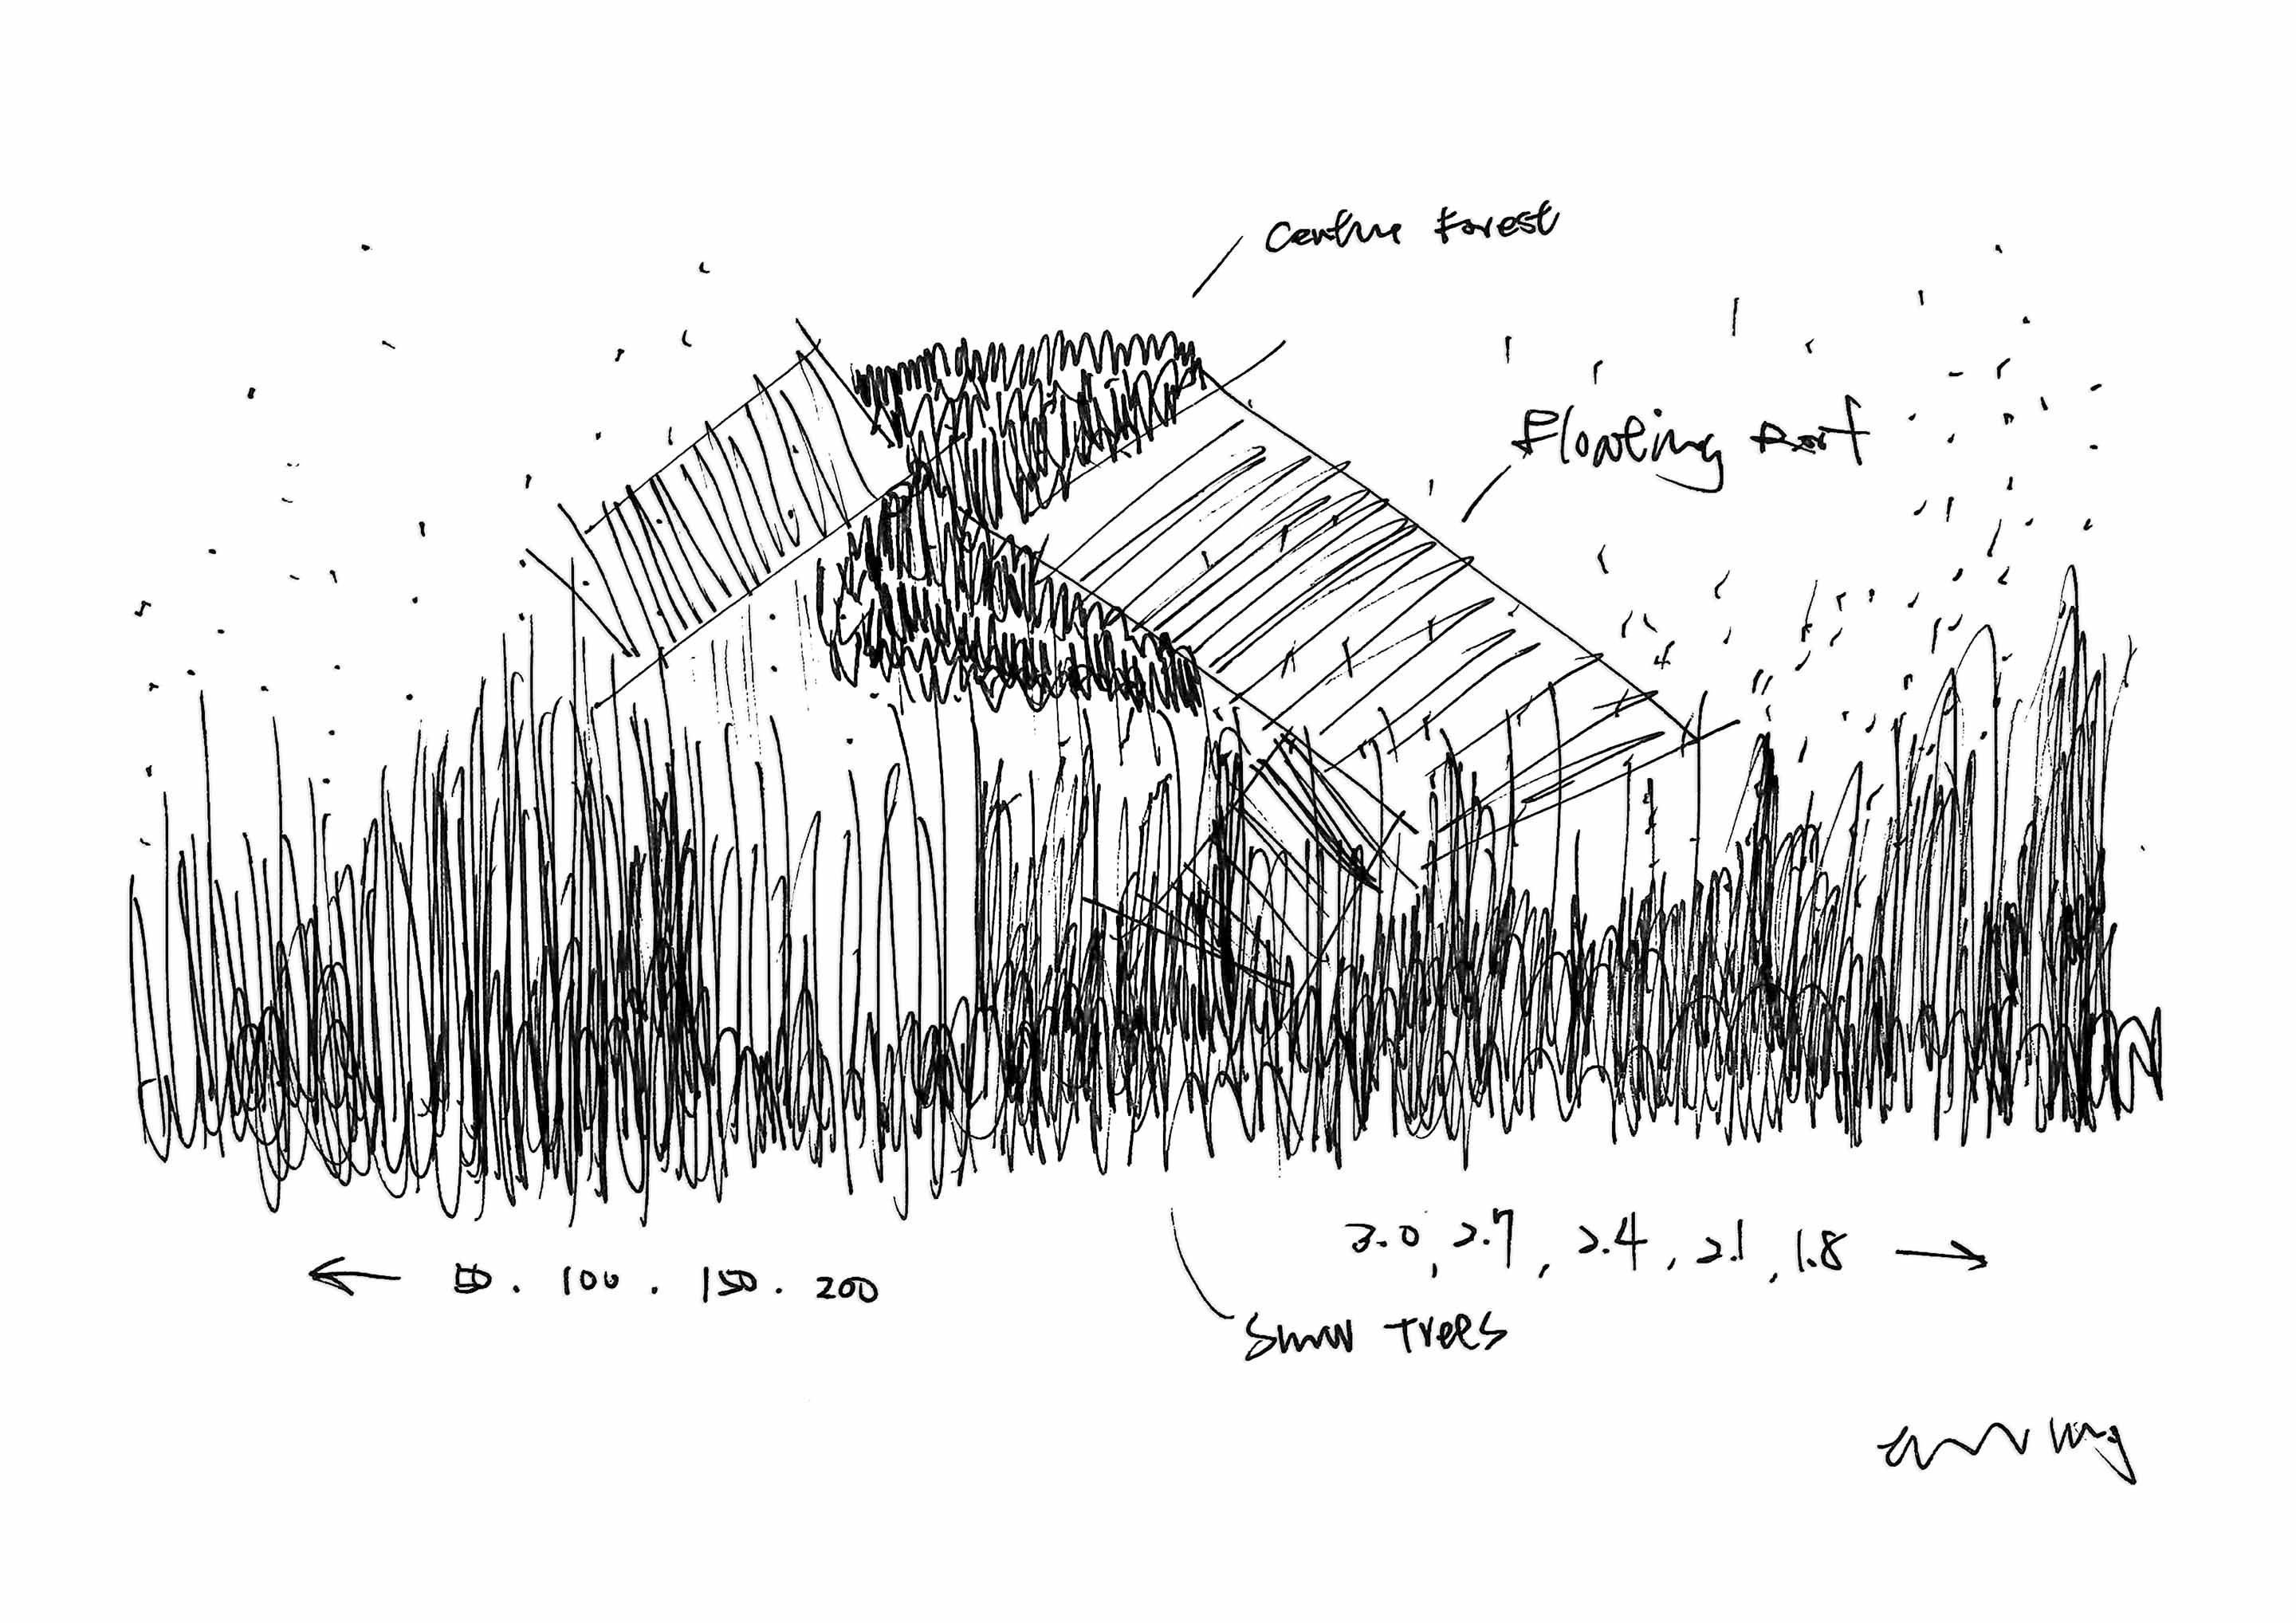 Centre Forest
Floating Roof
3.0, 2.7, 2.4, 2.1, 1.8
50. 100. 150. 200
Small Trees